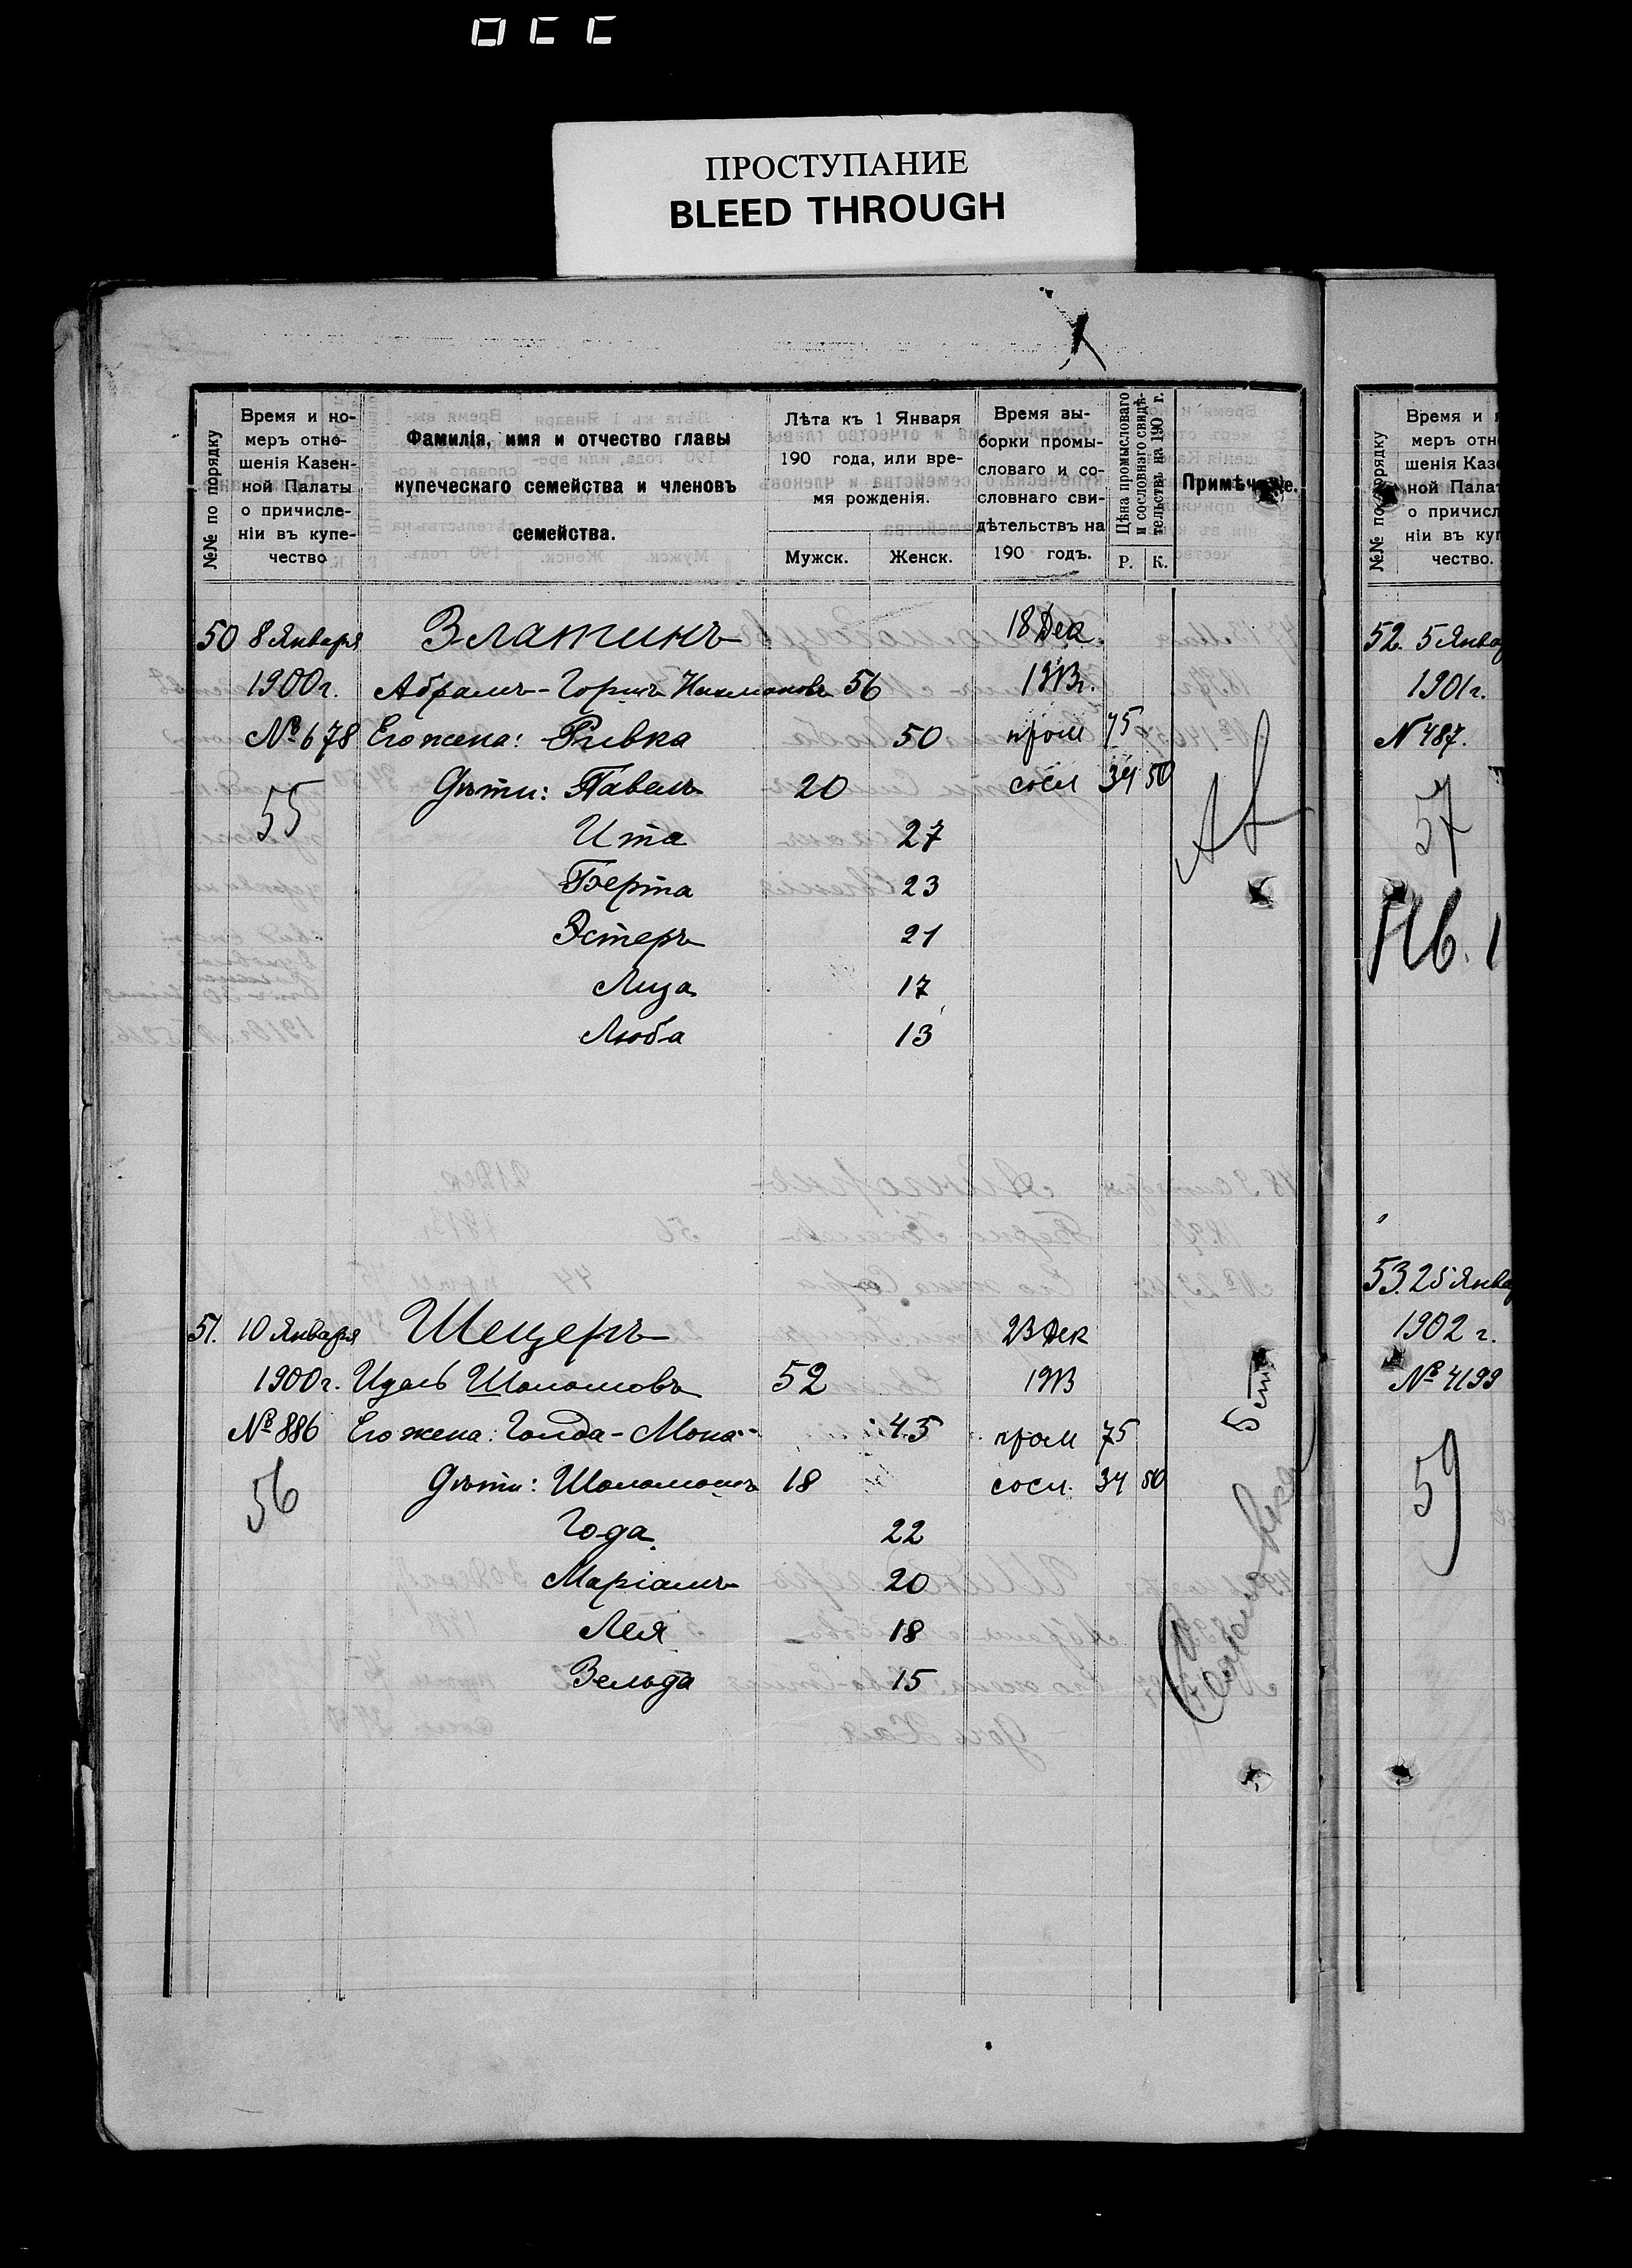 ПРОСТУПАНИЕ
BLEED THROUGH
№№ по порядку
Время и но-
меръ отно-
шенія Казен-
ной Палаты
о причисле-
ніи въ купе-
чество
Фамилія, имя и отчество главы
купеческаго семейства и членовъ
семейства.
Лѣта къ 1 Января
190 года, или вре-
мя рожденія.
Мужск. Женск.
Время вы-
борки промы-
словаго и со-
словнаго сви-
дѣтельствъ на
190 годъ.
Цѣна промысловаго
и сословнаго свидѣ-
тельствъ на 190 г.
Р. К.
Примѣч
50 8 Января Златинъ 18 Дек.
1900 г. Абрамъ-Горшъ Нахмановъ 56 1913.
№ 678 Его жена: Ривка 50 пром 75
55 Дѣти: Павелъ 20 сосл 34 50
Ита 27
Берта 23
Эстеръ 21
Лиза 17
Люба 13
51. 10 Января Шецеръ 23 Дек
1900 г. Идель Шоломовъ 52 1913
№ 886 Его жена: Голда-Мона 45 пром 75
56 Дѣти: 18 сосл. 34 50
Года 22
Маріамъ 20
Лея 18
Зельда 15
№№ по порядку
Время и
меръ отн
шенія Каз
ной Палат
о причисл
ніи въ куп
чество.
52. 5 Янва
1901 г.
№ 487.
57
53. 25 Янва
1902 г.
№ 4199
59